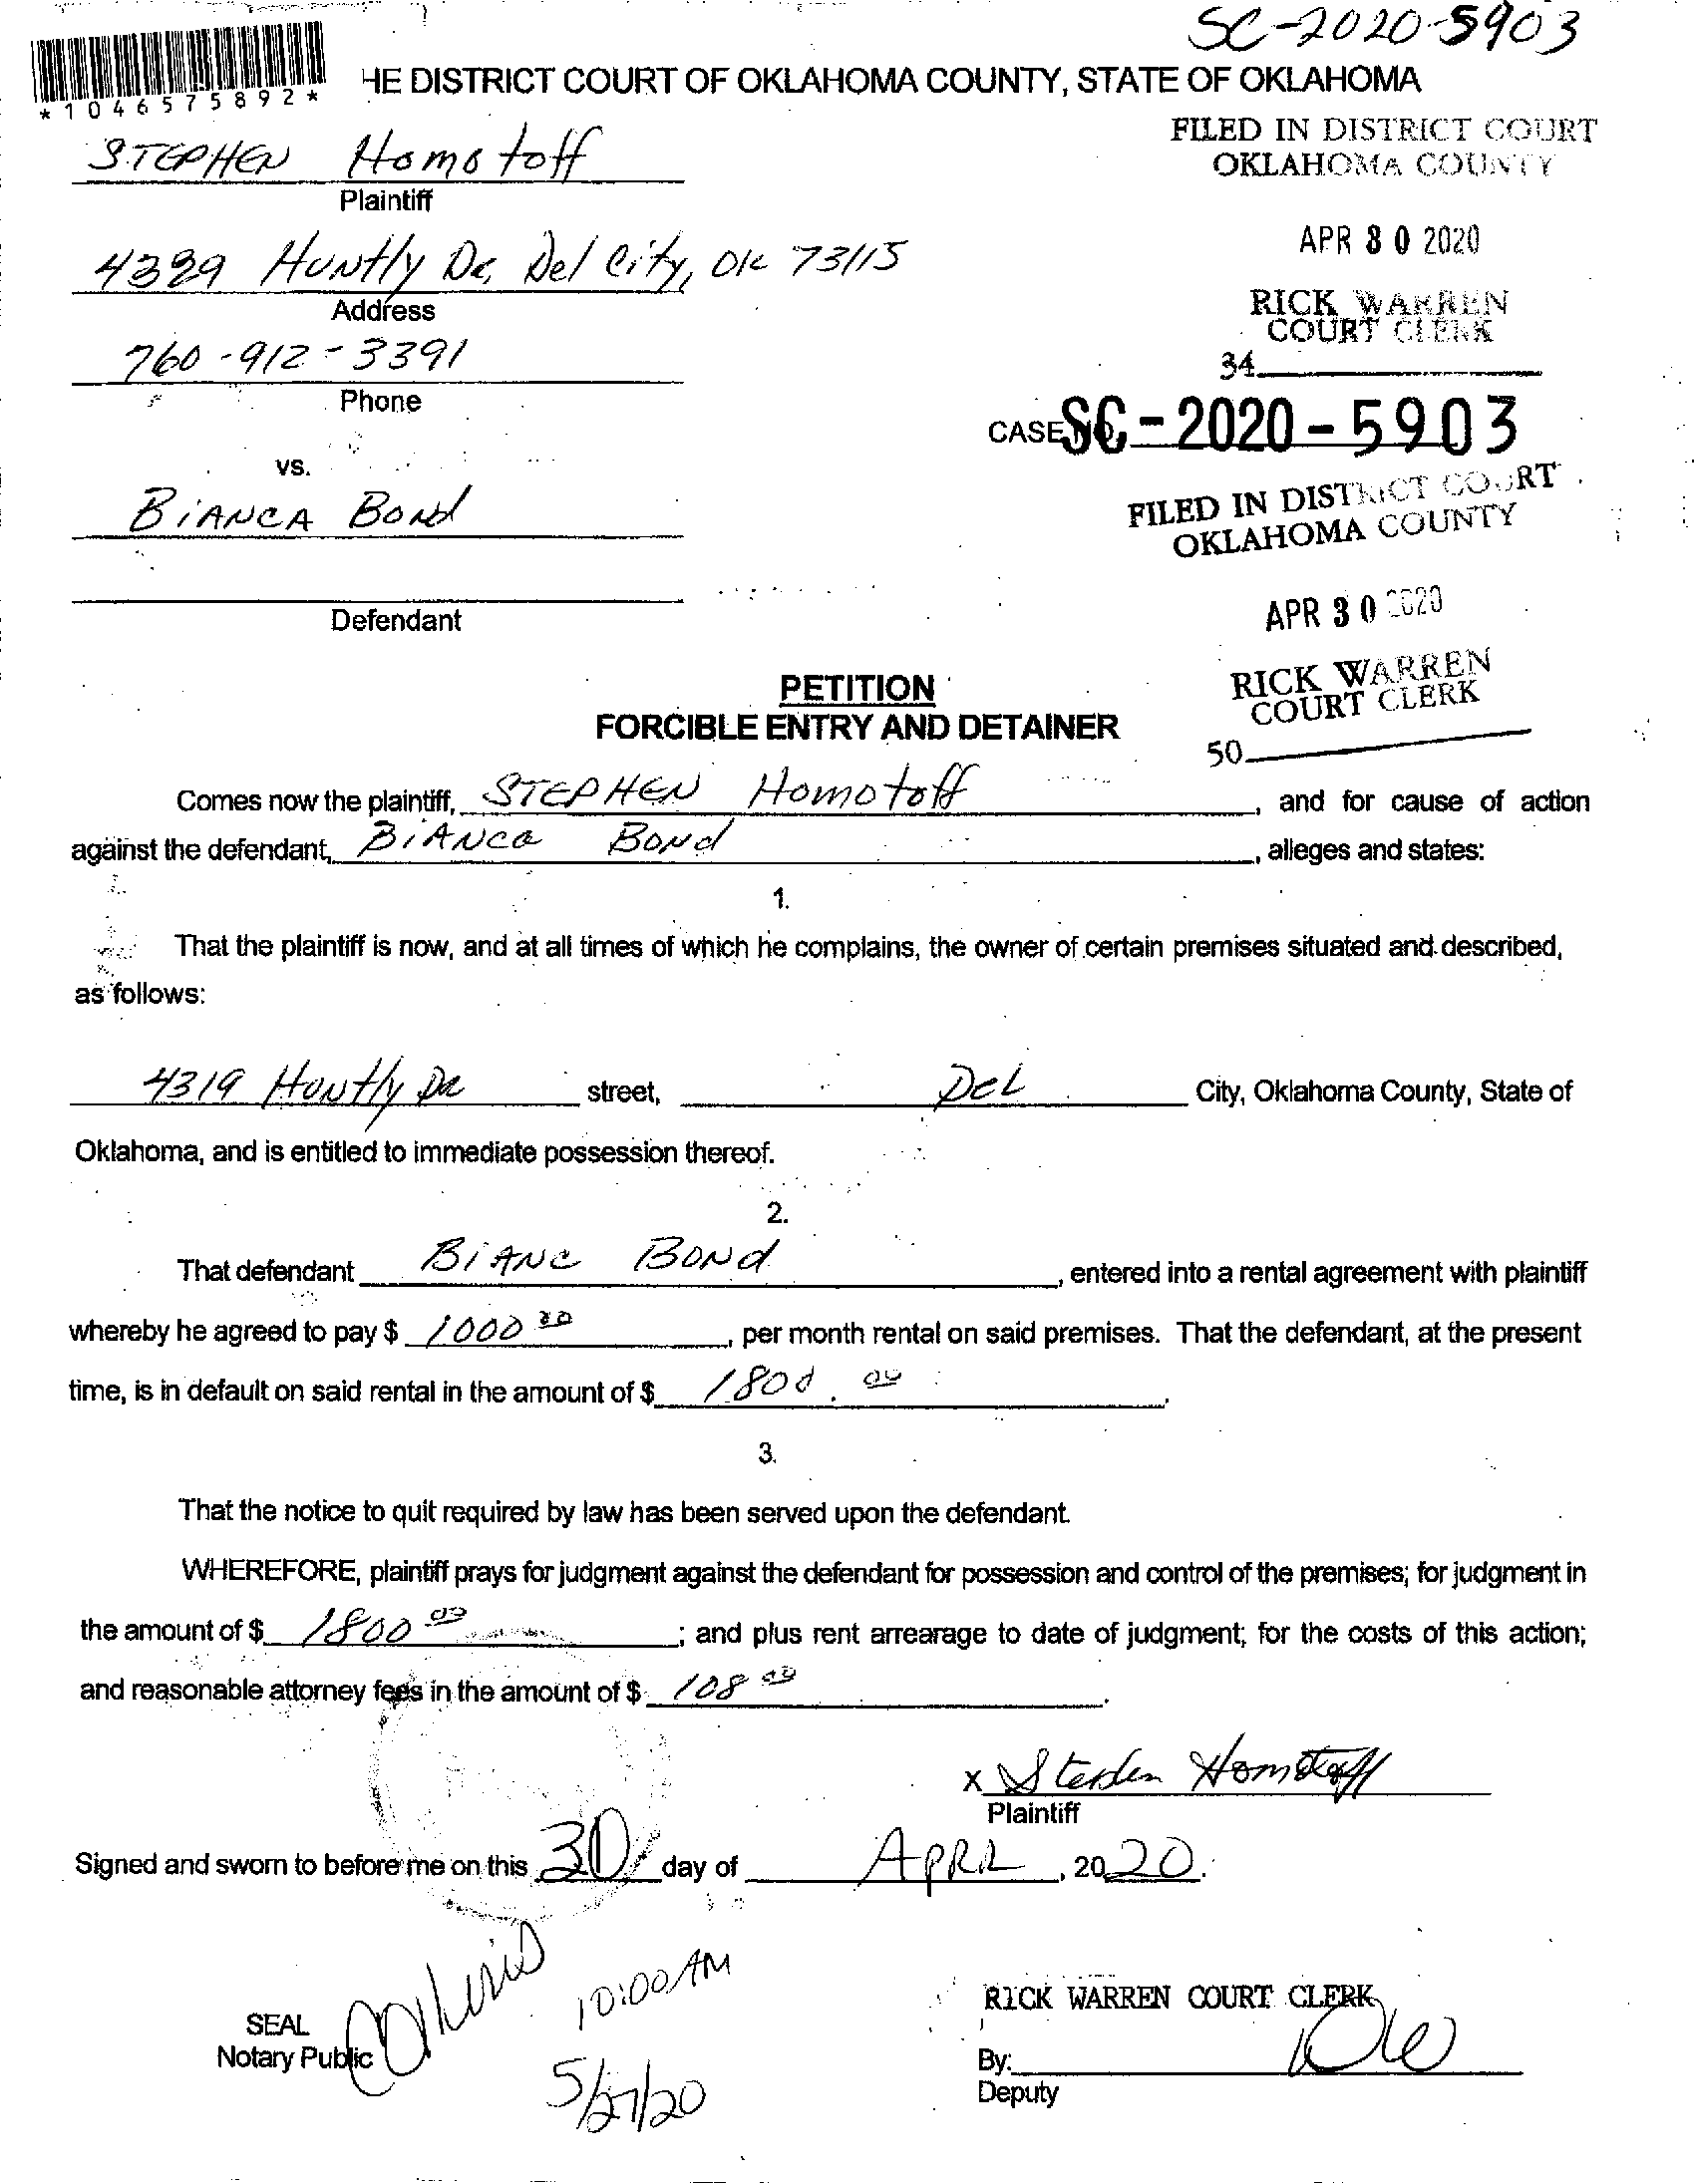 SC-2020-5903
*1046575892*
HE DISTRICT COURT OF OKLAHOMA COUNTY, STATE OF OKLAHOMA
FILED IN DISTRICT COURT
OKLAHOMA COUNTY
STEPHEN Homotoff
Plaintiff
APR 30 2020
4329 Huntly Dr, Del City, OK 73115
Address
RICK WARREN
COURT CLERK
34
760-912-3391
Phone
CASE NO. SC-2020-5903
vs.
BiANCA Bond
FILED IN DISTRICT COURT
OKLAHOMA COUNTY
Defendant
APR 30 2020
RICK WARREN
COURT CLERK
50
PETITION
FORCIBLE ENTRY AND DETAINER
Comes now the plaintiff, STEPHEN Homotoff, and for cause of action
against the defendant, BiANCa Bond, alleges and states:
1.
That the plaintiff is now, and at all times of which he complains, the owner of certain premises situated and described,
as follows:
4319 Huntly Dr street, Del City, Oklahoma County, State of
Oklahoma, and is entitled to immediate possession thereof.
2.
That defendant BiANC Bond, entered into a rental agreement with plaintiff
whereby he agreed to pay $ 1000 00, per month rental on said premises. That the defendant, at the present
time, is in default on said rental in the amount of $ 1800. 00.
3.
That the notice to quit required by law has been served upon the defendant.
WHEREFORE, plaintiff prays for judgment against the defendant for possession and control of the premises; for judgment in
the amount of $ 1800 00; and plus rent arrearage to date of judgment; for the costs of this action;
and reasonable attorney fees in the amount of $ 108 00.
x Stephen Homotoff
Plaintiff
Signed and sworn to before me on this 30 day of APRIL, 2020.
10:00 AM
RICK WARREN COURT CLERK
SEAL
Notary Public
By:
Deputy
5/27/20